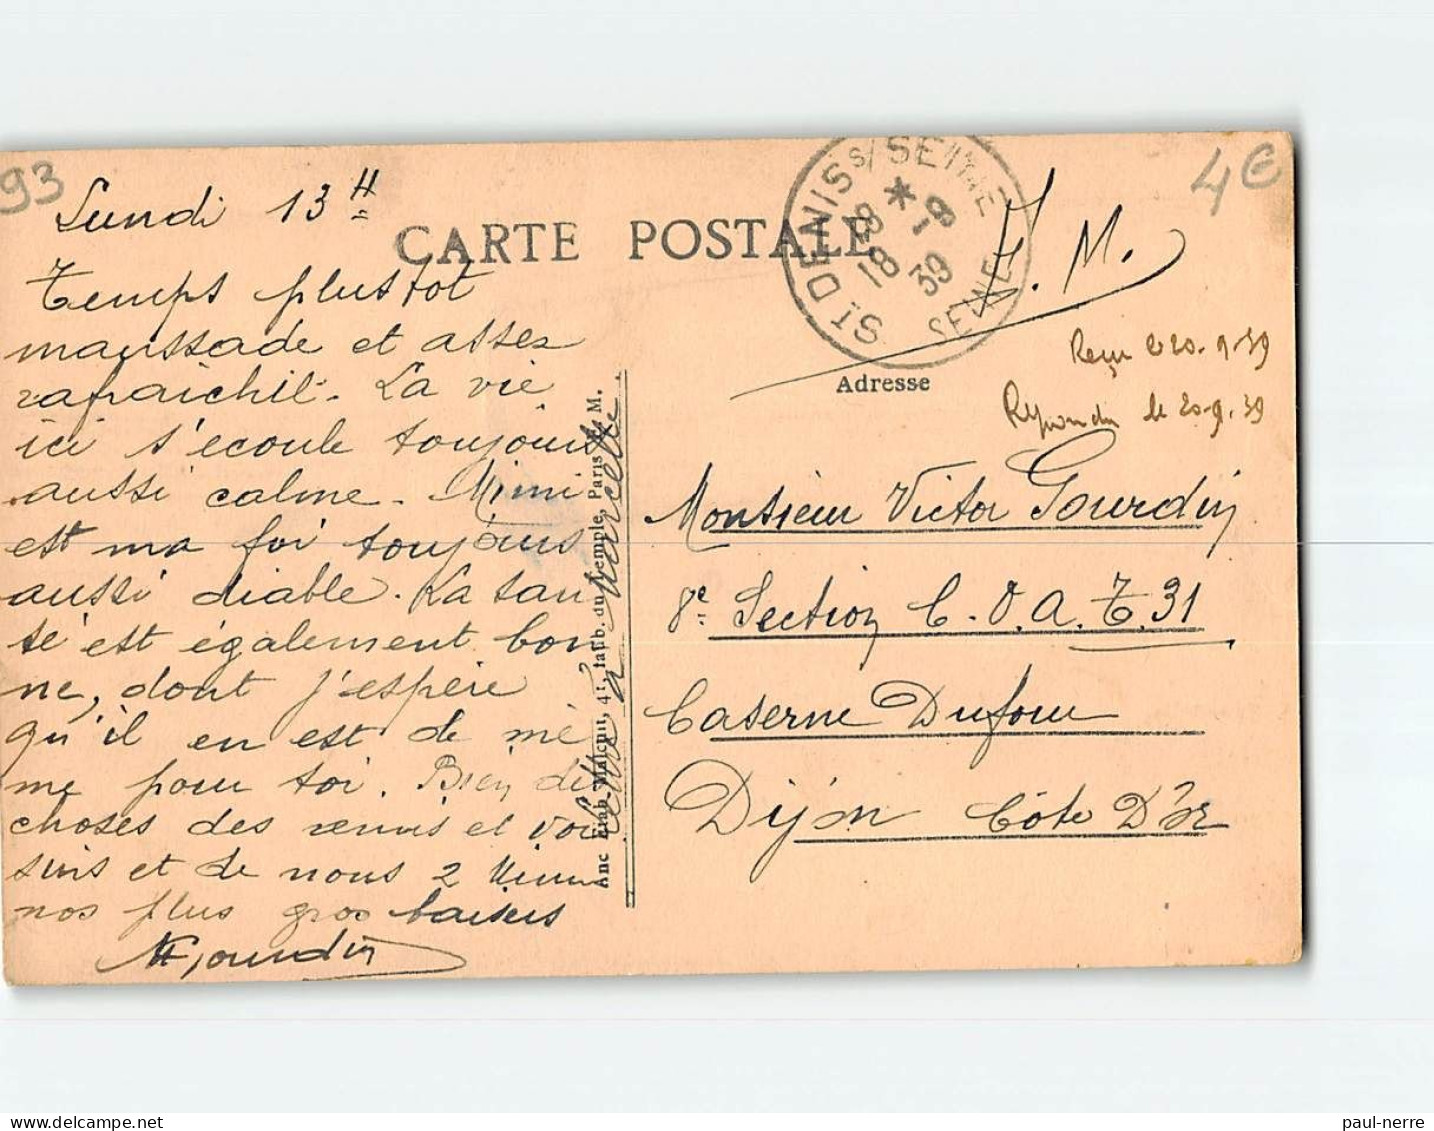 93
Lundi 13 H
Temps plustot
maussade et assez
rafraichit. La vie
ici s'ecoule toujours
aussi calme. Mimi
est ma foi toujours
aussi diable. La san
té est également bon
ne, dont j'espère
qu'il en est de mê
me pour toi. Bien de
choses des amis et voi
sins et de nous 2 Mimi
nos plus gros baisers
Gourdin
CARTE POSTALE
ST DENIS S/ SEINE
*
18 28
-9
39
SEINE
F. M.
4€
Reçu le 20-9-39
Répondu le 20-9-39
Adresse
Monsieur Victor Gourdin
8e Section C.O.A. T. 31
Caserne Dufour
Dijon Côte D'or
Anc Etab. Malcuit, 41, faub. du Temple, Paris
à Marcelle
paul-nerre